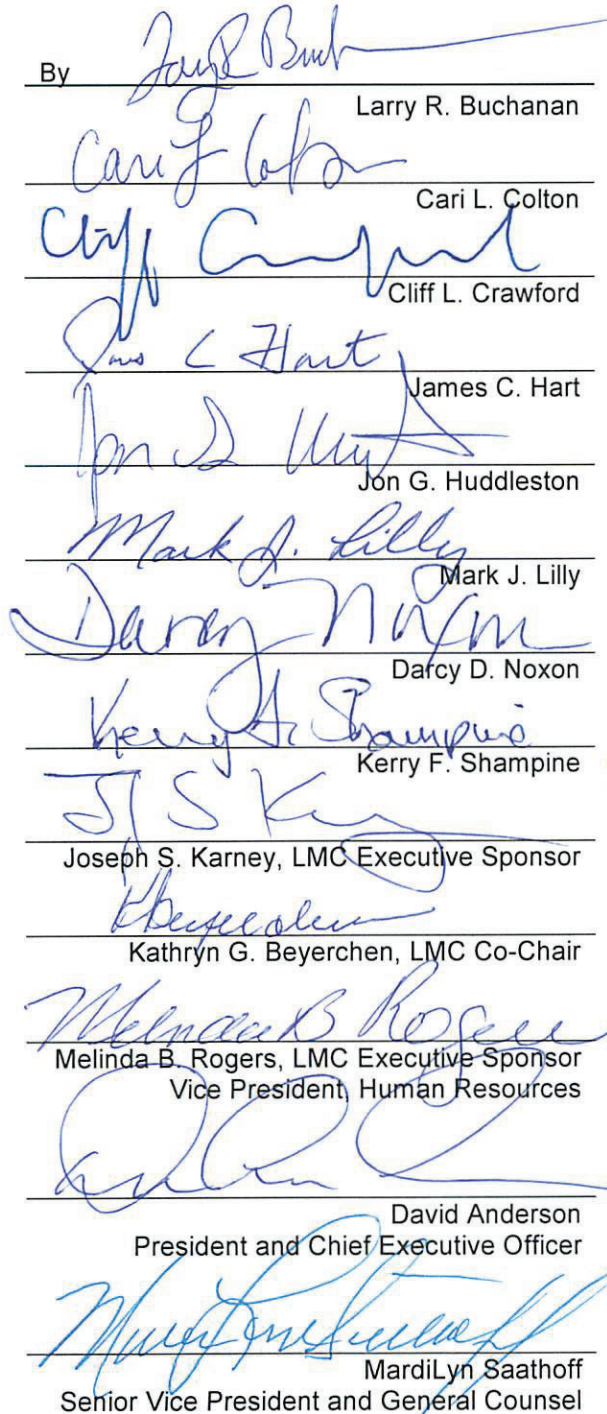 By Larry R. Buchanan
Cari L. Colton
Cliff L. Crawford
James C. Hart
Jon G. Huddleston
Mark J. Lilly
Darcy D. Noxon
Kerry F. Shampine
Joseph S. Karney, LMC Executive Sponsor
Kathryn G. Beyerchen, LMC Co-Chair
Melinda B. Rogers, LMC Executive Sponsor
Vice President, Human Resources
David Anderson
President and Chief Executive Officer
MardiLyn Saathoff
Senior Vice President and General Counsel